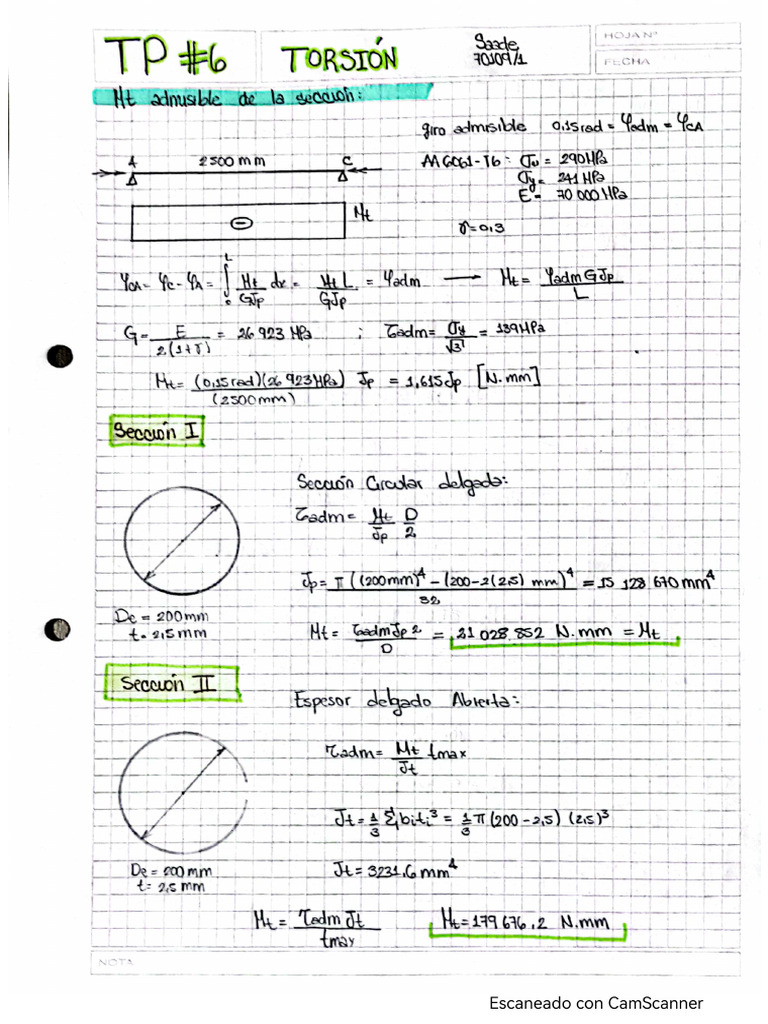 TP #6
TORSIÓN
Saade
70109/1
HOJA Nº
FECHA
Mt admisible de la sección:
giro admisible 0,15rad = φadm = φCA
A 2500 mm C
AA6061-T6: σu = 290MPa
σy = 241 MPa
E = 70 000 MPa
⊖ Mt
γ=0,3
φCA = φC - φA = ∫₀ᴸ Mt/GJp dx = Mt L/GJp = φadm → Mt = φadm G Jp/L
G = E/2(1+γ) = 26 923 MPa ; τadm = σy/√3 = 139MPa
Mt = (0,15rad)(26 923MPa)/(2500mm) Jp = 1,615Jp [N.mm]
Sección I
Sección Circular delgada:
τadm = Mt/Jp D/2
Jp = π((200mm)⁴ - (200-2(2,5) mm)⁴/32 = 15 128 670mm⁴
De = 200mm
t = 2,5mm
Mt = τadm Jp 2/D = 21 028 852 N.mm = Mt
Sección II
Espesor delgado Abierta:
τadm = Mt/Jt tmax
Jt = 1/3 Σ biti³ = 1/3 π (200-2,5) (2,5)³
De = 200 mm
t = 2,5 mm
Jt = 3231,6 mm⁴
Mt = τadm Jt/tmax
Mt = 179 676,2 N.mm
NOTA
Escaneado con CamScanner